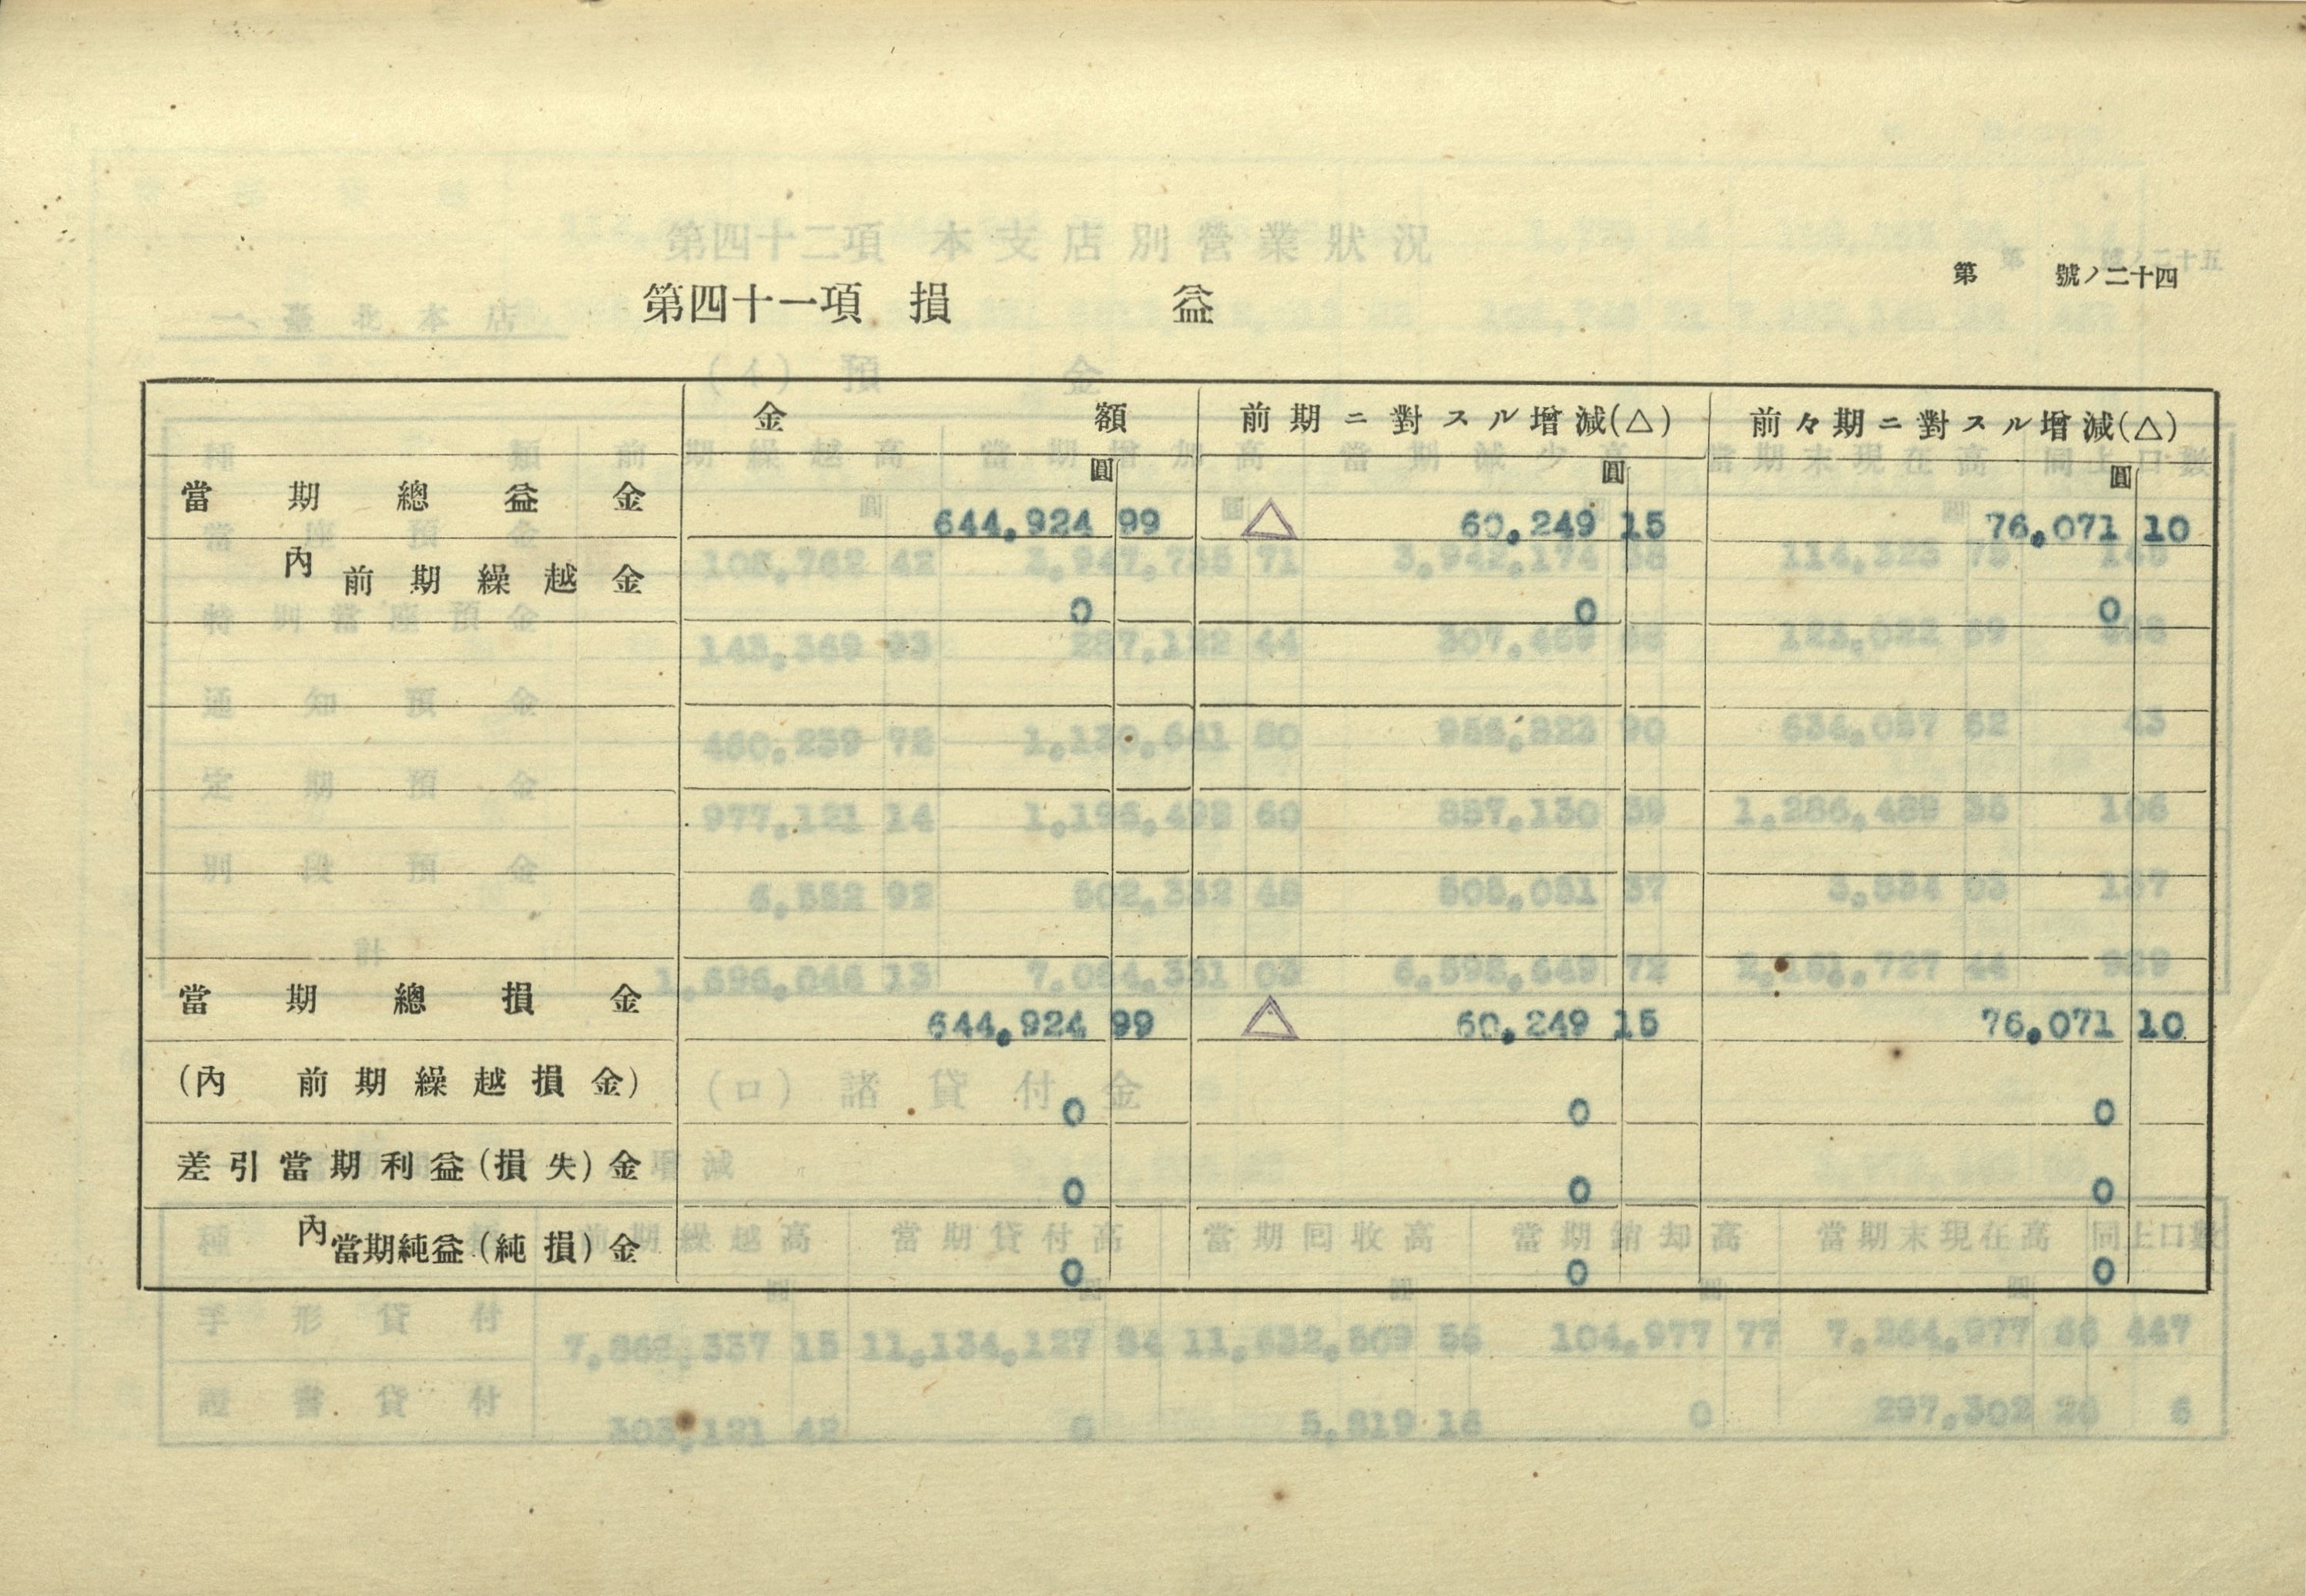 第　　號ノ二十四
第四十一項 損　　益
金　額 前期ニ對スル增減(△) 前々期ニ對スル增減(△)
圓 圓 圓
當期總益金 644,924 99 △ 60,249 15 76,071 10
內前期繰越金 0 0 0
當期總損金 644,924 99 △ 60,249 15 76,071 10
(內 前期繰越損金) 0 0 0
差引當期利益(損失)金 0 0 0
內當期純益(純損)金 0 0 0